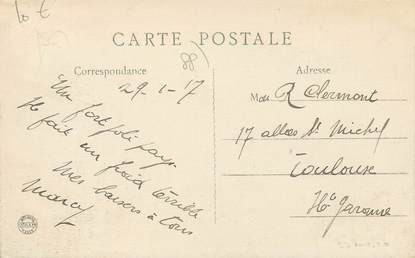 10 €
CARTE POSTALE
Correspondance
29-1-17
Un fort joli pays
Il fait un froid terrible
Mes baisers à tous
Marcel
Adresse
R Clermont
17 allees St Michel
Toulouse
Hte Garonne